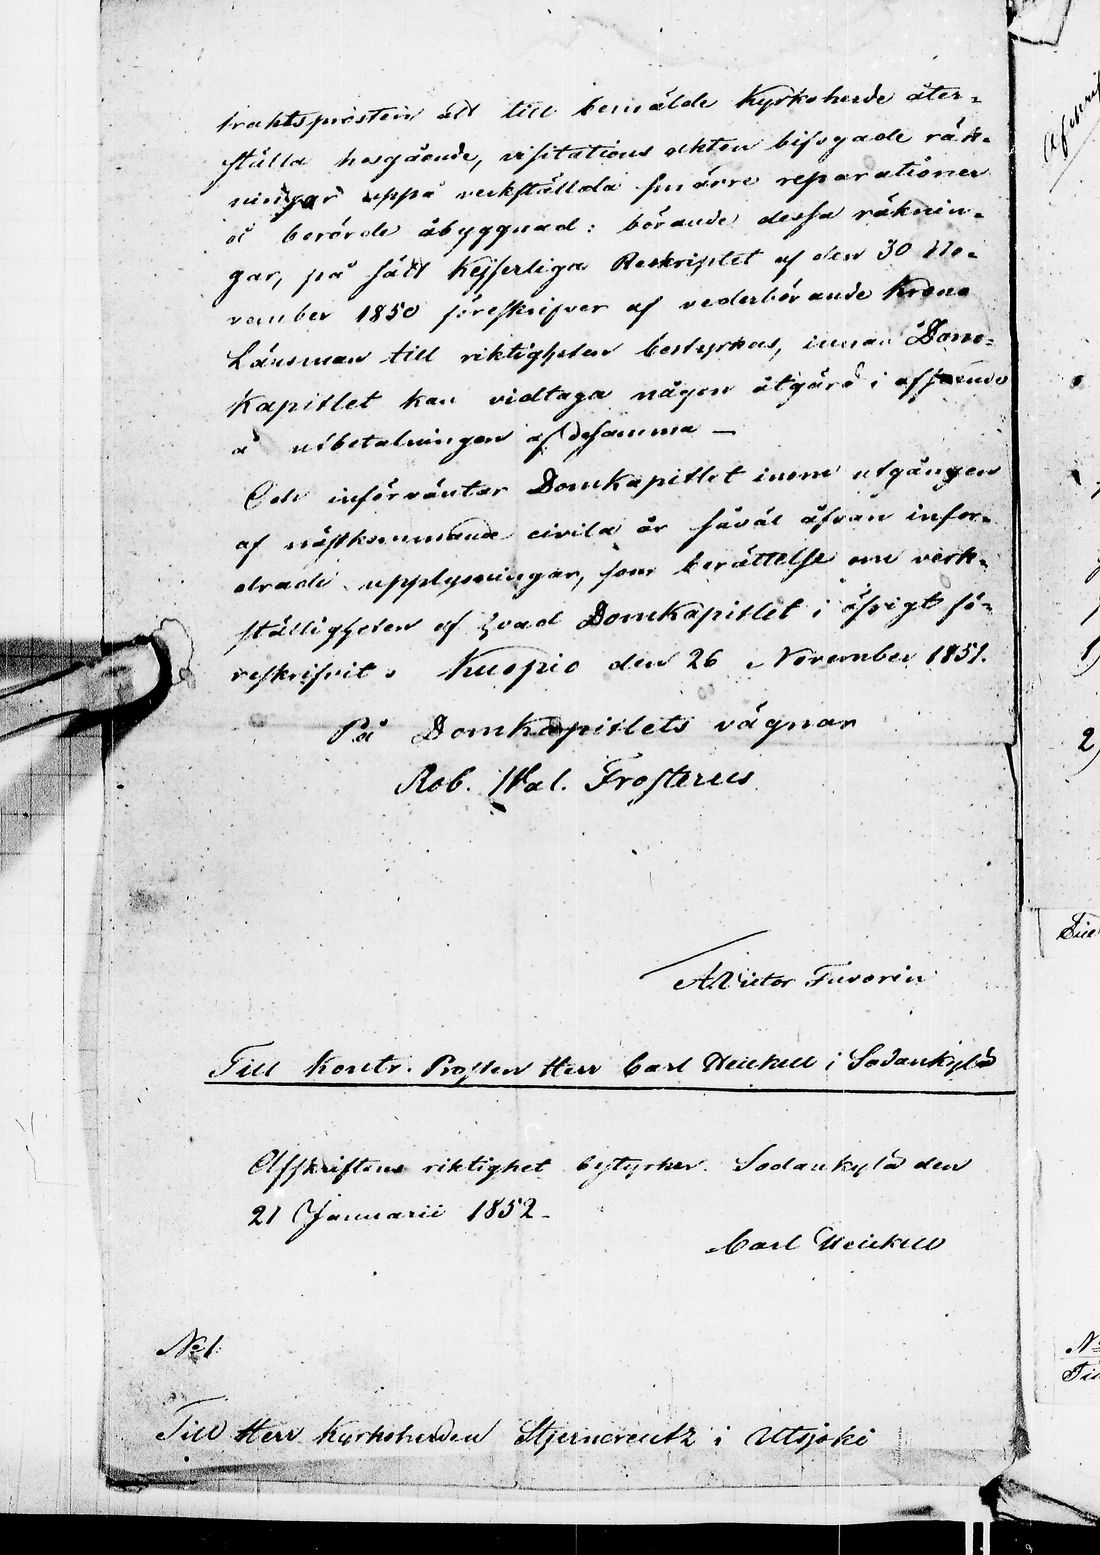 traktsprosten att till bemälde Kyrkoherde åter-
ställa hosgående, visitations akten bifogade räk-
ningar uppå verkställda smärre reparationer
å berörde åbyggnad: börande dessa räknin-
gar, på sätt Kejserliga Reskriptet af den 30 No-
vember 1850 föreskrifver af vederbörande Krono
Länsman till riktigheten bestyrkas, innan Dom-
Kapitlet kan vidtaga någon åtgärd i afseende
å utbetalningen af desamma —
Och införväntar DomKapitlet inom utgången
af nästkommande civila år såväl äfvan infor-
drade upplysningar, som berättelse om verk-
ställigheten af hvad DomKapitlet i öfrigt fö-
reskrifvit. Kuopio den 26 November 1851.
På DomKapitlets vägnar
Rob. Wal. Frosterus
A. Victor Favorin
Till Kontr. Prosten Herr Carl Heickell i Sodankylä
Afskriftens riktighet bestyrker. Sodankylä den
21 Januarii 1852.
Carl Heickell
No 1.
Till Herr Kyrkoherden Stjerncreutz i Utsjoki
1)
2)
No